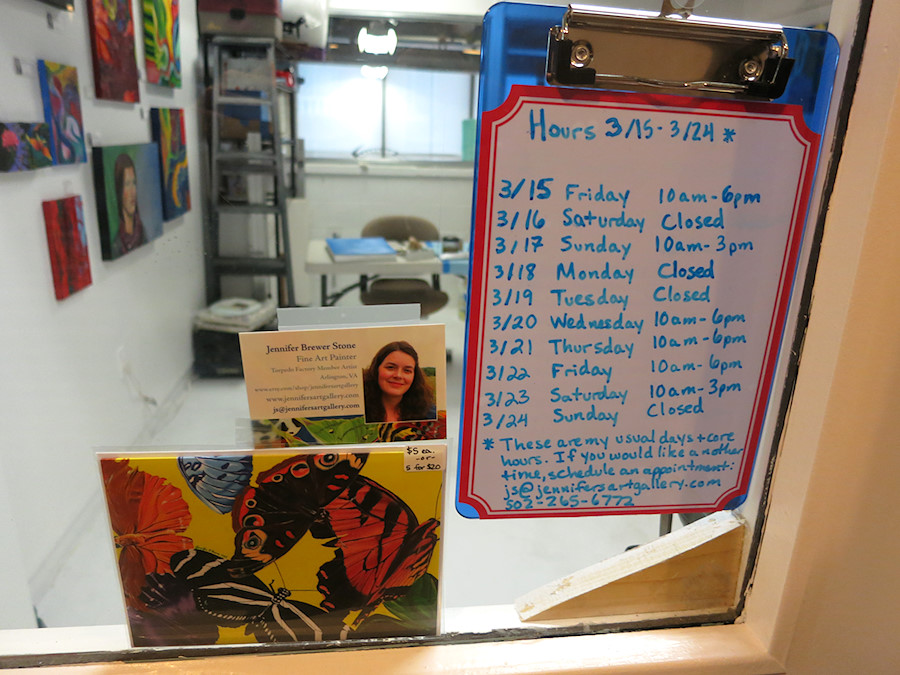 Hours 3/15-3/24 *
3/15 Friday 10am-6pm
3/16 Saturday Closed
3/17 Sunday 10am-3pm
3/18 Monday Closed
3/19 Tuesday Closed
3/20 Wednesday 10am-6pm
3/21 Thursday 10am-6pm
3/22 Friday 10am-6pm
3/23 Saturday 10am-3pm
3/24 Sunday Closed
* These are my usual days + core
hours. If you would like another
time, schedule an appointment:
js@jennifersartgallery.com
502-265-6772
Jennifer Brewer Stone
Fine Art Painter
Torpedo Factory Member Artist
Arlington, VA
www.etsy.com/shop/jennifersartgallery
www.jennifersartgallery.com
js@jennifersartgallery.com
$5 ea.
-or-
5 for $20